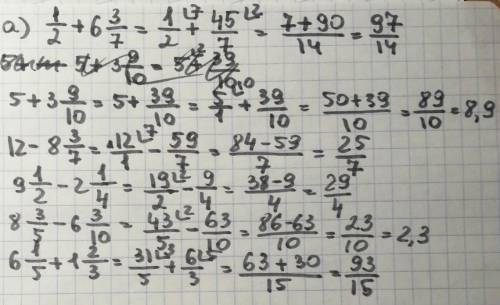 а) 1/2 + 6 3/7 = 1/2 ⌊7 + 45/7 ⌊2 = 7+90/14 = 97/14
5 + 3 9/10 = 5 + 39/10
5 + 3 9/10 = 5 + 39/10 = 5/1 ⌊10 + 39/10 = 50+39/10 = 89/10 = 8,9
12 - 8 3/7 = 12/1 ⌊7 - 59/7 = 84-59/7 = 25/7
9 1/2 - 2 1/4 = 19/2 ⌊2 - 9/4 = 38-9/4 = 29/4
8 3/5 - 6 3/10 = 43/5 ⌊2 - 63/10 = 86-63/10 = 23/10 = 2,3
6 1/5 + 1 2/3 = 31/5 ⌊3 + 6/3 ⌊5 = 63+30/15 = 93/15